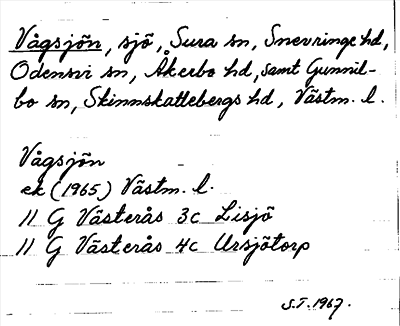 Vågsjön, sjö, Sura sn, Snevringe hd,
Odensvi sn, Åkerbo hd, samt Gunnil-
bo sn, Skinnskattebergs hd, Västm. l.
Vågsjön
ek (1965) Västm. l.
11 G Västerås 3c Lisjö
11 G Västerås 4c Ursjötorp
S.T. 1967.